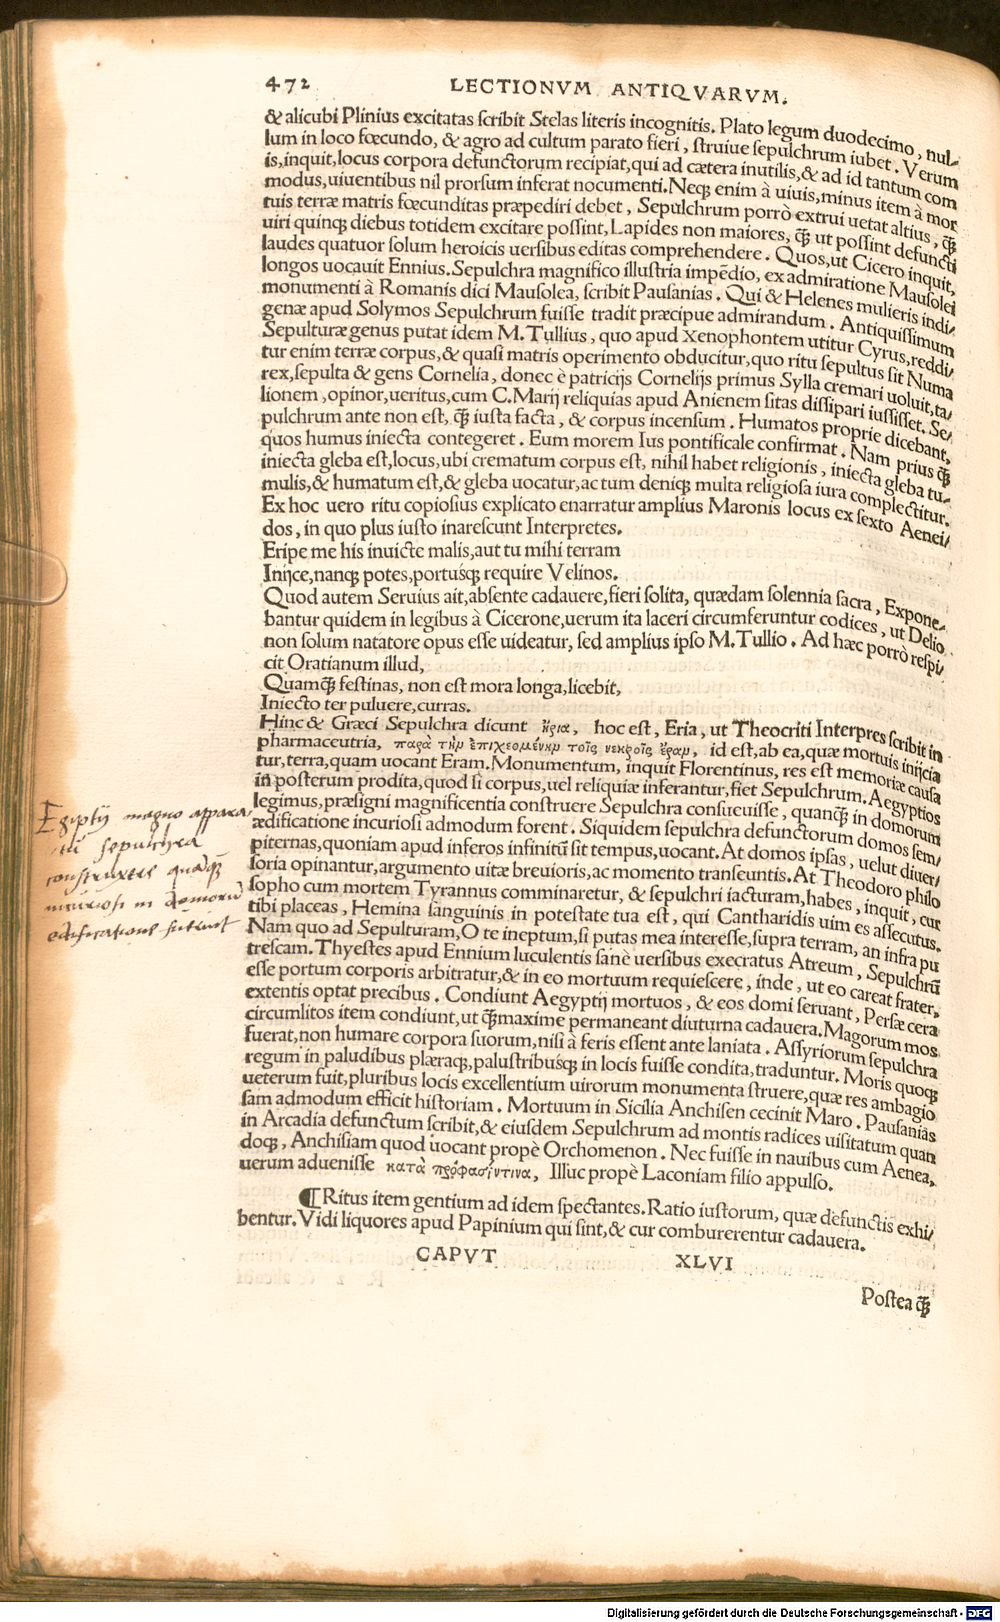 472 LECTIONVM ANTIQVARVM.
& alicubi Plinius excitatas scribit Stelas literis incognitis. Plato legum duodecimo, nul-
lum in loco fœcundo, & agro ad cultum parato fieri, struiue sepulchrum iubet. Verum
is, inquit, locus corpora defunctorum recipiat, qui ad cætera inutilis, & ad id tantum com
modus, uiuentibus nil prorsum inferat nocumenti. Neqȝ enim à uiuis, minus item à mor
tuis terræ matris fœcunditas præpediri debet, Sepulchrum porrò extrui uetat altius, q̃ȝ
uiri quinqȝ diebus totidem excitare possint, Lapides non maiores, q̃ȝ ut possint defuncti
laudes quatuor solum heroicis uersibus editas comprehendere. Quos, ut Cicero inquit,
longos uocauit Ennius. Sepulchra magnifico illustria impẽdio, ex admiratione Mausolei
monumenti à Romanis dici Mausolea, scribit Pausanias. Qui & Helenes mulieris indi/
genæ apud Solymos Sepulchrum fuisse tradit præcipue admirandum. Antiquissimum
Sepulturæ genus putat idem M. Tullius, quo apud Xenophontem utitur Cyrus, reddi/
tur enim terræ corpus, & quasi matris operimento obducitur, quo ritu sepultus sit Numa
rex, sepulta & gens Cornelia, donec è patricijs Cornelijs primus Sylla cremari uoluit, ta/
lionem, opinor, ueritus, cum C. Marij reliquias apud Anienem sitas dissipari iussisset. Se/
pulchrum ante non est, q̃ȝ iusta facta, & corpus incensum. Humatos proprie dicebant,
quos humus iniecta contegeret. Eum morem Ius pontificale confirmat. Nam prius q̃ȝ
iniecta gleba est, locus, ubi crematum corpus est, nihil habet religionis, iniecta gleba tu-
mulis, & humatum est, & gleba uocatur, ac tum deniqȝ multa religiosa iura complectitur.
Ex hoc uero ritu copiosius explicato enarratur amplius Maronis locus ex sexto Aenei/
dos, in quo plus iusto inarescunt Interpretes.
Eripe me his inuicte malis, aut tu mihi terram
Inijce, nanqȝ potes, portusqȝ require Velinos.
Quod autem Seruius ait, absente cadauere, fieri solita, quædam solennia sacra, Expone-
bantur quidem in legibus à Cicerone, uerum ita laceri circumferuntur codices, ut Delio
non solum natatore opus esse uideatur, sed amplius ipso M. Tullio. Ad hæc porrò respi/
cit Oratianum illud,
Quamq̃ȝ festinas, non est mora longa, licebit,
Iniecto ter puluere, curras.
Hinc & Græci Sepulchra dicunt ἤρια, hoc est, Eria, ut Theocriti Interpres scribit in
pharmaceutria, παρὰ τὴν ἐπιχεομένην τοῖς νεκροῖς ἔραν, id est, ab ea, quæ mortuis inijcia
tur, terra, quam uocant Eram. Monumentum, inquit Florentinus, res est memoriæ causa
in posterum prodita, quod si corpus, uel reliquiæ inferantur, fiet Sepulchrum. Aegyptios
legimus, præsigni magnificentia construere Sepulchra consueuisse, quanq̃ȝ in domorum
ædificatione incuriosi admodum forent. Siquidem sepulchra defunctorum domos sem/
piternas, quoniam apud inferos infinitũ sit tempus, uocant. At domos ipsas, uelut diuer/
soria opinantur, argumento uitæ breuioris, ac momento transeuntis. At Theodoro philo
sopho cum mortem Tyrannus comminaretur, & sepulchri iacturam, habes, inquit, cur
tibi placeas, Hemina sanguinis in potestate tua est, qui Cantharidis uim es assecutus.
Nam quo ad Sepulturam, O te ineptum, si putas mea interesse, supra terram, an infra pu
trescam. Thyestes apud Ennium luculentis sanè uersibus execratus Atreum, Sepulchrũ
esse portum corporis arbitratur, & in eo mortuum requiescere, inde, ut eo careat frater,
extentis optat precibus. Condiunt Aegyptij mortuos, & eos domi seruant, Persæ cera
circumlitos item condiunt, ut q̃ȝ maxime permaneant diuturna cadauera. Magorum mos
fuerat, non humare corpora suorum, nisi à feris essent ante laniata. Assyriorum sepulchra
regum in paludibus plæraqȝ, palustribusqȝ in locis fuisse condita, traduntur. Moris quoqȝ
ueterum fuit, pluribus locis excellentium uirorum monumenta struere, quæ res ambagio
sam admodum efficit historiam. Mortuum in Sicilia Anchisen cecinit Maro. Pausanias
in Arcadia defunctum scribit, & eiusdem Sepulchrum ad montis radices uisitatum quan
doqȝ, Anchisiam quod uocant propè Orchomenon. Nec fuisse in nauibus cum Aenea,
uerum aduenisse κατὰ πρόφασίντινα, Illuc propè Laconiam filio appulso.
Egiptij magno appara
tu sepulchra
construxere quãqȝ
incuriosi in domorũ
edificatione fuerint
¶ Ritus item gentium ad idem spectantes. Ratio iustorum, quæ defunctis exhi/
bentur. Vidi liquores apud Papinium qui sint, & cur comburerentur cadauera.
CAPVT XLVI
Postea q̃ȝ
Digitalisierung gefördert durch die Deutsche Forschungsgemeinschaft - DFG